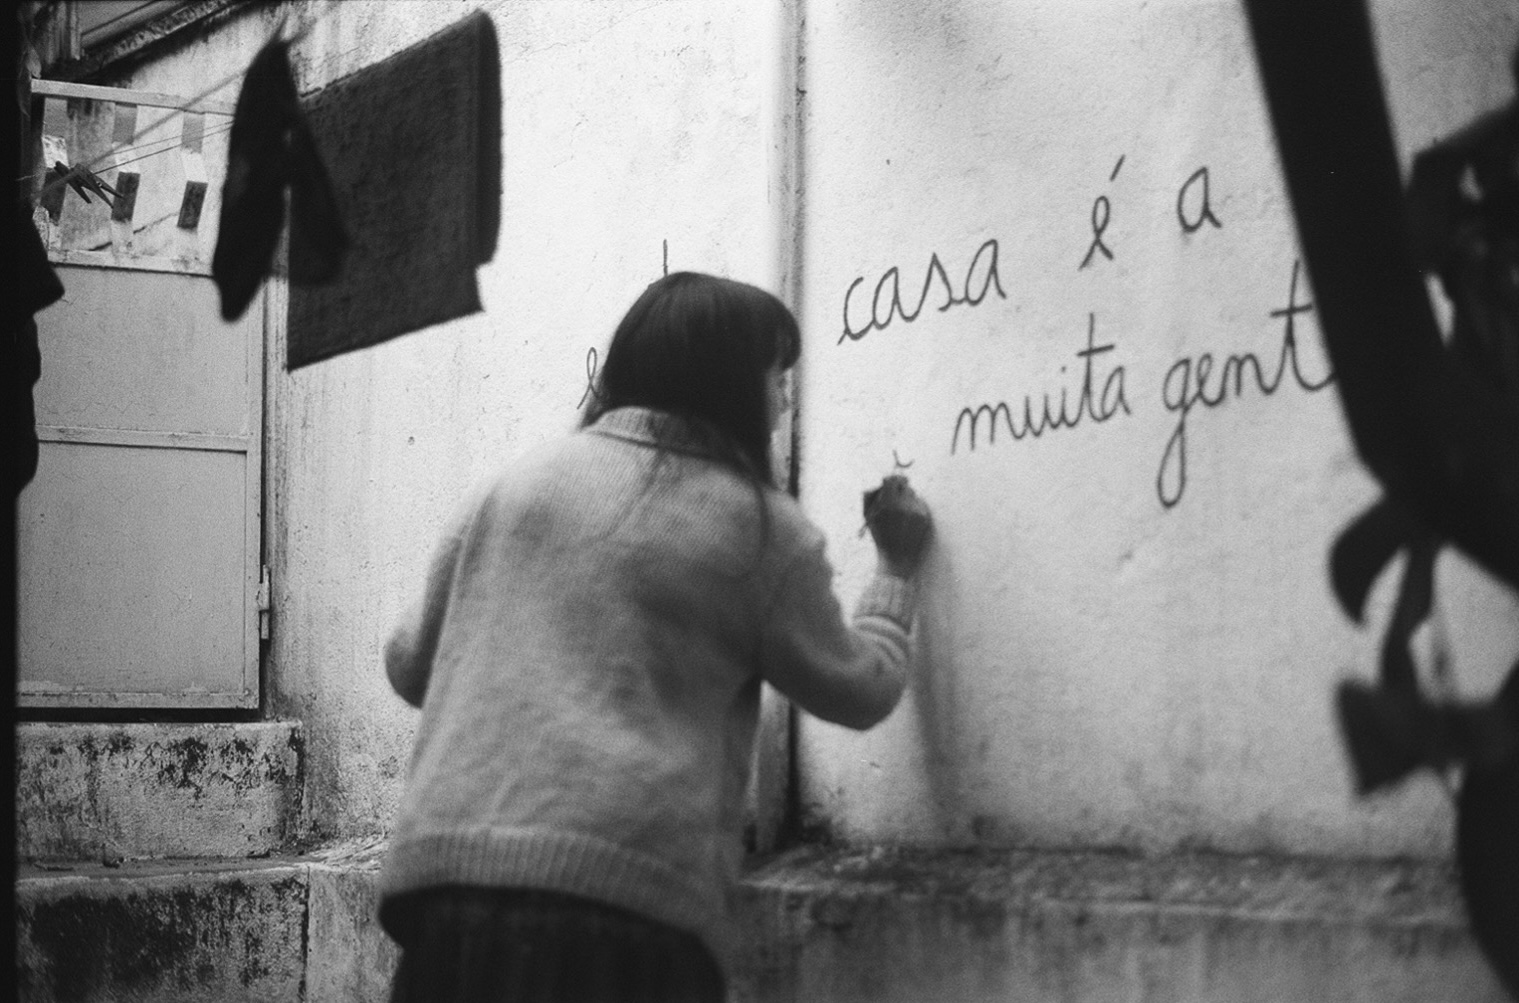 casa é a
muita gent